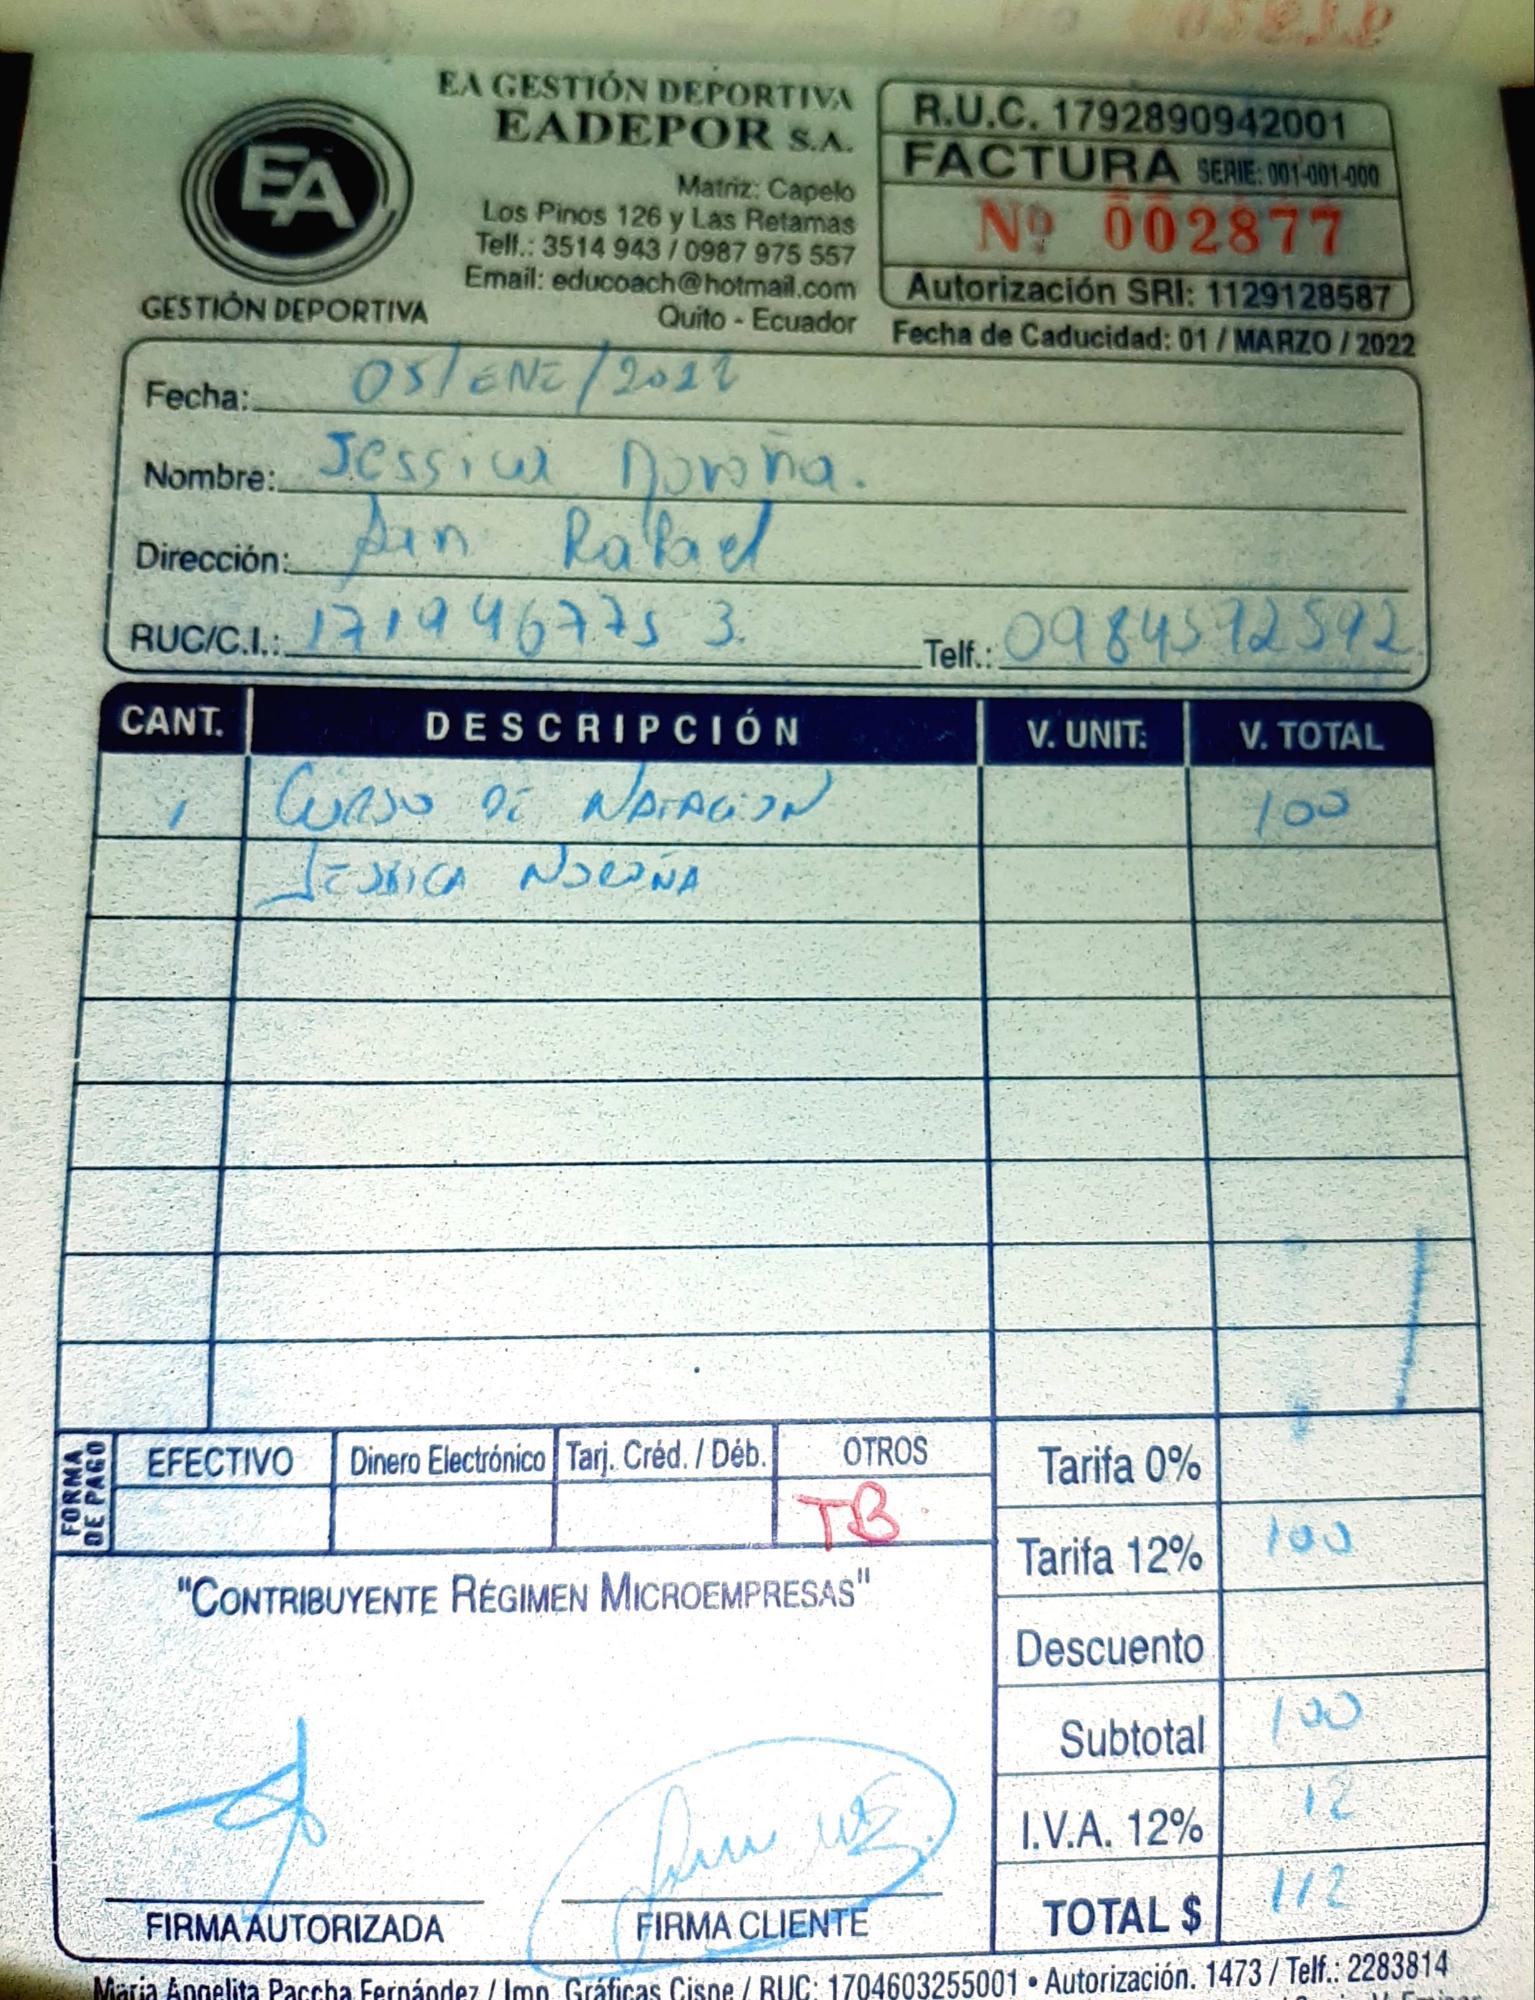 EA GESTIÓN DEPORTIVA
EADEPOR S.A.
EA
GESTIÓN DEPORTIVA
Matriz: Capelo
Los Pinos 126 y Las Retamas
Telf.: 3514 943 / 0987 975 557
Email: educoach@hotmail.com
Quito - Ecuador
R.U.C. 1792890942001
FACTURA SERIE: 001-001-000
Nº 002877
Autorización SRI: 1129128587
Fecha de Caducidad: 01 / MARZO / 2022
Fecha: 05/ENE/2022
Nombre: Jessica Noroña.
Dirección: San Rafael
RUC/C.I.: 1719467753. Telf.: 0984592592
CANT. DESCRIPCIÓN V. UNIT: V. TOTAL
1 CURSO DE NATACION 100
JESSICA NOROÑA
FORMA DE PAGO
EFECTIVO Dinero Electrónico Tarj. Créd. / Déb. OTROS
TB
Tarifa 0%
Tarifa 12% 100
"CONTRIBUYENTE RÉGIMEN MICROEMPRESAS"
Descuento
Subtotal 100
I.V.A. 12% 12
TOTAL $ 112
FIRMA AUTORIZADA FIRMA CLIENTE
María Angelita Paccha Fernández / Imp. Gráficas Cisne / RUC: 1704603255001 • Autorización. 1473 / Telf.: 2283814